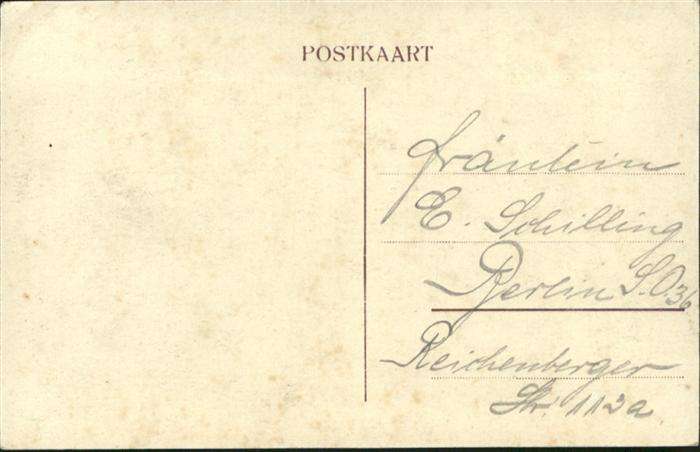 POSTKAART
Fräulein
E. Schilling
Berlin S.O.36
Reichenberger
Str. 113a